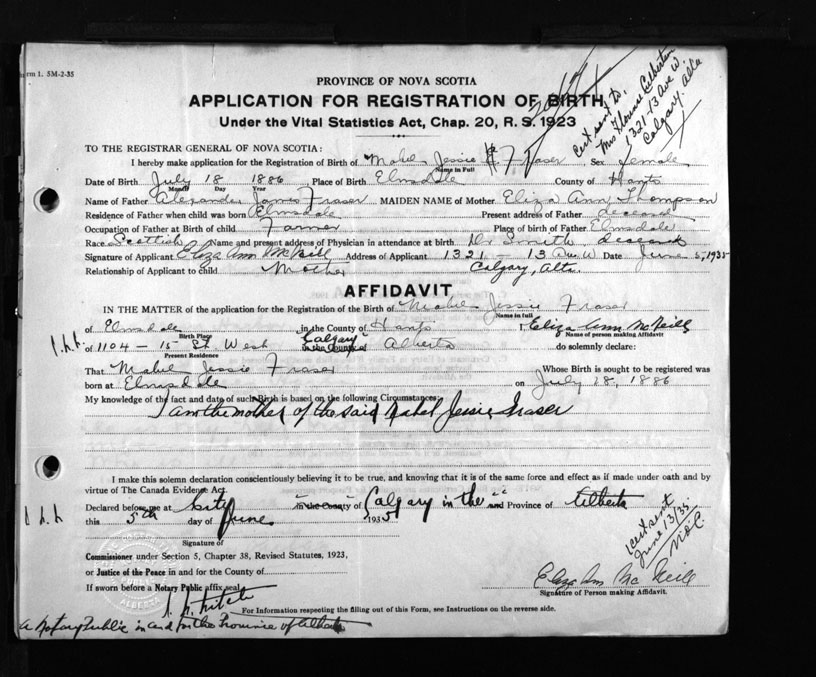 rm 1. 5M-2-35
PROVINCE OF NOVA SCOTIA
APPLICATION FOR REGISTRATION OF BIRTH
Under the Vital Statistics Act, Chap. 20, R. S. 1923
Cert sent to,
Mrs Florence Elberton
1321-13 Ave W.
Calgary. Alta
TO THE REGISTRAR GENERAL OF NOVA SCOTIA:
I hereby make application for the Registration of Birth of Mabel Jessie Fraser Sex female
Name in Full
Date of Birth July 18 1886 Place of Birth Elmsdale County of Hants
Month Day Year
Name of Father Alexander James Fraser MAIDEN NAME of Mother Eliza Ann Thompson
Residence of Father when child was born Elmsdale Present address of Father deceased
Occupation of Father at Birth of child Farmer Place of birth of Father Elmsdale
Race Scottish Name and present address of Physician in attendance at birth Dr Smith, deceased
Signature of Applicant Eliza Ann McNeill Address of Applicant 1321 - 13 Ave W Date June 5, 1935
Relationship of Applicant to child Mother Calgary, Alta.
AFFIDAVIT
IN THE MATTER of the application for the Registration of the Birth of Mabel Jessie Fraser
Name in full
of Elmsdale in the County of Hants I, Eliza Ann McNeill
Birth Place Name of person making Affidavit
of 1104 - 15 St West Calgary in the County of Alberta do solemnly declare:
Present Residence
That Mabel Jessie Fraser Whose Birth is sought to be registered was
born at Elmsdale on July 18, 1886
My knowledge of the fact and date of such Birth is based on the following Circumstances:
I am the mother of the said Mabel Jessie Fraser
I make this solemn declaration conscientiously believing it to be true, and knowing that it is of the same force and effect as if made under oath and by
virtue of The Canada Evidence Act.
Declared before me at city in the County of Calgary in the and Province of Alberta
this 5th day of June 1935
Signature of
Commissioner under Section 5, Chapter 38, Revised Statutes, 1923,
or Justice of the Peace in and for the County of
If sworn before a Notary Public affix seal
1 cert sent
June 13/35
Eliza Ann McNeill
Signature of Person making Affidavit.
For Information respecting the filling out of this Form, see Instructions on the reverse side.
a Notary Public in and for the Province of Alberta